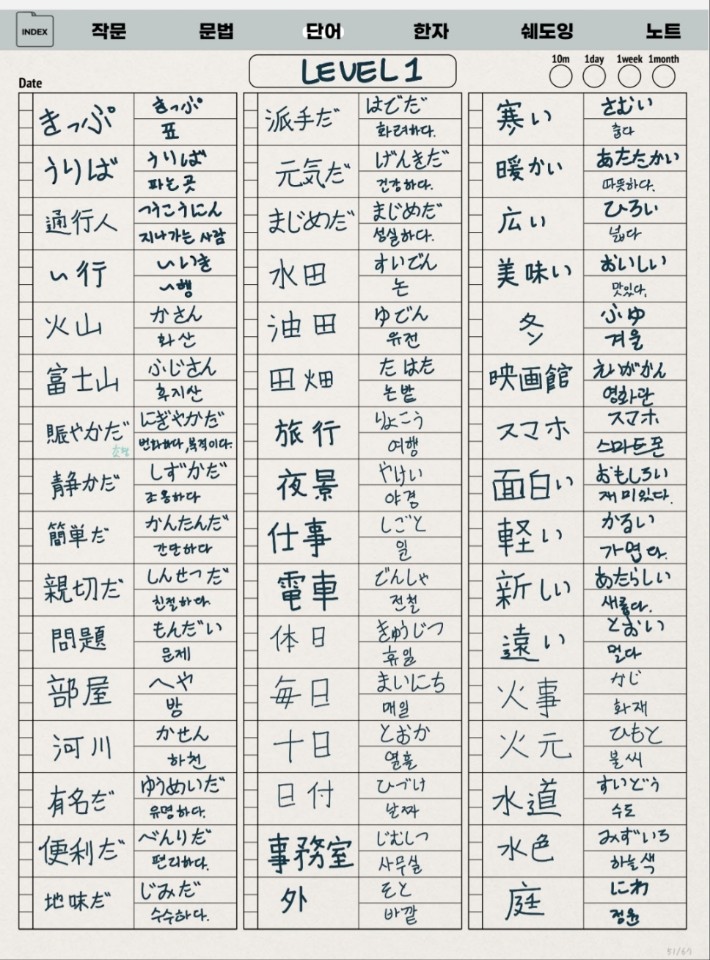 INDEX 작문 문법 단어 한자 쉐도잉 노트
LEVEL 1
10m 1day 1week 1month
Date
きっぷ
きっぷ
표
うりば
うりば
파는 곳
通行人
つうこうにん
지나가는 사람
~行
~いき
~행
火山
かさん
화산
富士山
ふじさん
후지산
賑やかだ
にぎやかだ
번화하다, 북적이다.
静かだ
しずかだ
조용하다
簡単だ
かんたんだ
간단하다
親切だ
しんせつだ
친절하다.
問題
もんだい
문제
部屋
へや
방
河川
かせん
하천
有名だ
ゆうめいだ
유명하다.
便利だ
べんりだ
편리하다.
地味だ
じみだ
수수하다.
派手だ
はでだ
화려하다.
元気だ
げんきだ
건강하다.
まじめだ
まじめだ
성실하다.
水田
すいでん
논
油田
ゆでん
유전
田畑
たはた
논밭
旅行
りょこう
여행
夜景
やけい
야경
仕事
しごと
일
電車
でんしゃ
전철
休日
きゅうじつ
휴일
毎日
まいにち
매일
十日
とおか
열흘
日付
ひづけ
날짜
事務室
じむしつ
사무실
外
そと
바깥
寒い
さむい
춥다
暖かい
あたたかい
따뜻하다.
広い
ひろい
넓다
美味い
おいしい
맛있다.
冬
ふゆ
겨울
映画館
えいがかん
영화관
スマホ
スマホ
스마트폰
面白い
おもしろい
재미있다.
軽い
かるい
가볍다.
新しい
あたらしい
새롭다.
遠い
とおい
멀다
火事
かじ
화재
火元
ひもと
불씨
水道
すいどう
수도
水色
みずいろ
하늘색
庭
にわ
정원